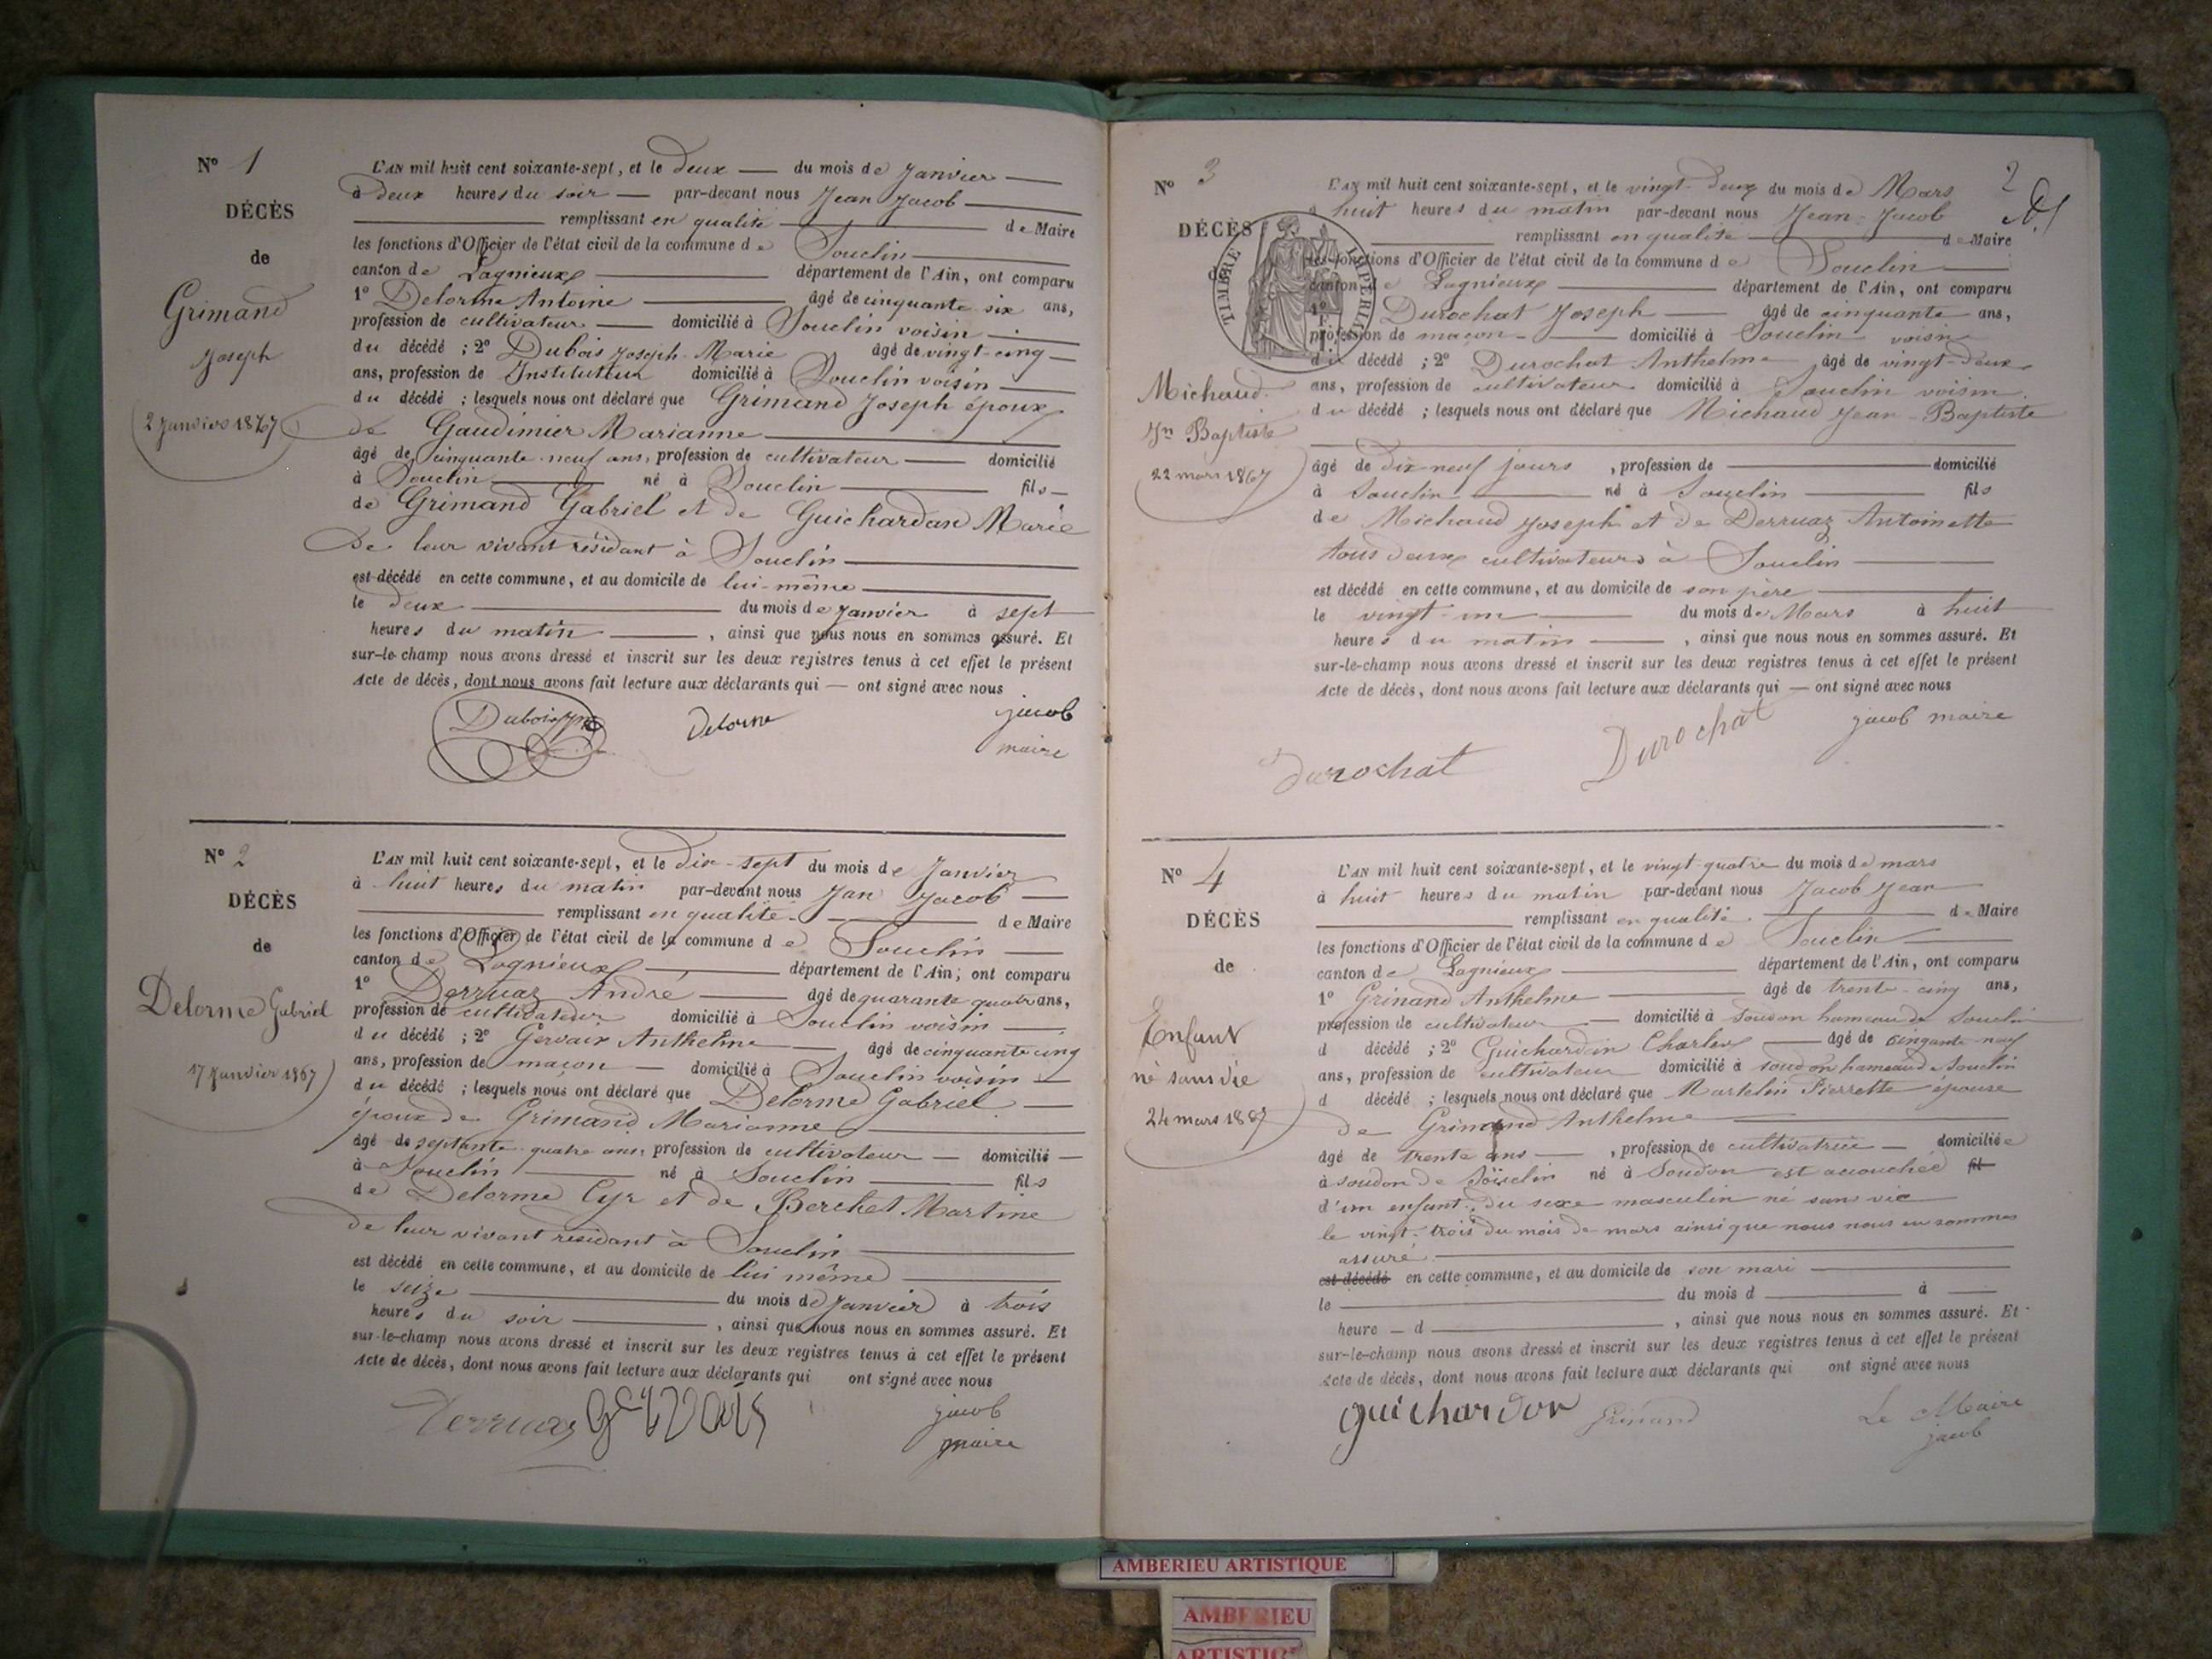 N° 1
DÉCÈS
de
Grimand
Joseph
2 Janvier 1867
L'AN mil huit cent soixante-sept, et le deux — du mois de Janvier —
à deux heures du soir — par-devant nous Jean Jacob —
remplissant en qualité — de Maire
les fonctions d'Officier de l'état civil de la commune de Souclin —
canton de Lagnieux — département de l'Ain, ont comparu
1° Delorme Antoine — âgé de cinquante six ans,
profession de cultivateur — domicilié à Souclin voisin —
du décédé ; 2° Dubois Joseph-Marie âgé de vingt-cinq —
ans, profession de Instituteur domicilié à Souclin voisin —
du décédé ; lesquels nous ont déclaré que Grimand Joseph époux
de Gaudimier Marianne —
âgé de cinquante-neuf ans, profession de cultivateur — domicilié
à Souclin — né à Souclin — fils —
de Grimand Gabriel et de Guichardan Marie
de leur vivant résidant à Souclin —
est décédé en cette commune, et au domicile de lui-même —
le deux — du mois de Janvier à sept
heures du matin — , ainsi que nous nous en sommes assuré. Et
sur-le-champ nous avons dressé et inscrit sur les deux registres tenus à cet effet le présent
Acte de décès, dont nous avons fait lecture aux déclarants qui — ont signé avec nous
Dubois Jph Delorme jacob
maire
N° 2
DÉCÈS
de
Delorme Gabriel
17 Janvier 1867
L'AN mil huit cent soixante-sept, et le dix-sept du mois de Janvier
à huit heures du matin par-devant nous Jan Jacob —
remplissant en qualité — de Maire
les fonctions d'Officier de l'état civil de la commune de Souclin —
canton de Lagnieux — département de l'Ain, ont comparu
1° Derruaz André — âgé de quarante quatr ans,
profession de cultivateur domicilié à Souclin voisin —
du décédé ; 2° Gervais Anthelme — âgé de cinquante cinq
ans, profession de maçon — domicilié à Souclin voisin —
du décédé ; lesquels nous ont déclaré que Delorme Gabriel —
époux de Grimand Marianne —
âgé de septante-quatre ans, profession de cultivateur — domicilié —
à Souclin — né à Souclin — fils
de Delorme Cyr et de Berchet Martine
de leur vivant résidant à Souclin —
est décédé en cette commune, et au domicile de lui même —
le seize — du mois de Janvier à trois
heures du soir — , ainsi que nous nous en sommes assuré. Et
sur-le-champ nous avons dressé et inscrit sur les deux registres tenus à cet effet le présent
Acte de décès, dont nous avons fait lecture aux déclarants qui ont signé avec nous
Derruaz jacob
maire
2
N° 3
DÉCÈS
TIMBRE IMPÉRIAL
Michaud
Jn Baptiste
22 mars 1867
L'AN mil huit cent soixante-sept, et le vingt-deux du mois de Mars
à huit heures du matin par-devant nous Jean-Jacob
remplissant en qualité — de Maire
les fonctions d'Officier de l'état civil de la commune de Souclin —
canton de Lagnieux — département de l'Ain, ont comparu
1° Durochat Joseph — âgé de cinquante ans,
profession de maçon — domicilié à Souclin voisin
du décédé ; 2° Durochat Anthelme âgé de vingt-deux
ans, profession de cultivateur domicilié à Souclin voisin
du décédé ; lesquels nous ont déclaré que Michaud Jean-Baptiste
âgé de dix-neuf jours , profession de — domicilié
à Souclin — né à Souclin — fils
de Michaud Joseph et de Derruaz Antoinette
tous deux cultivateurs à Souclin —
est décédé en cette commune, et au domicile de son père —
le vingt-un — du mois de Mars à huit
heures du matin — , ainsi que nous nous en sommes assuré. Et
sur-le-champ nous avons dressé et inscrit sur les deux registres tenus à cet effet le présent
Acte de décès, dont nous avons fait lecture aux déclarants qui — ont signé avec nous
durochat Durochat jacob maire
N° 4
DÉCÈS
de
Enfant
né sans vie
24 mars 1867
L'AN mil huit cent soixante-sept, et le vingt-quatre du mois de mars
à huit heures du matin par-devant nous Jacob Jean
remplissant en qualité — de Maire
les fonctions d'Officier de l'état civil de la commune de Souclin —
canton de Lagnieux — département de l'Ain, ont comparu
1° Grinand Anthelme — âgé de trente-cinq ans,
profession de cultivateur — domicilié à Soudon hameau de Souclin
d décédé ; 2° Guichardon Charles — âgé de cinqante-neuf
ans, profession de cultivateur domicilié à soudon hameau de Souclin
d décédé ; lesquels nous ont déclaré que Martelin Pierrette épouse
de Grinand Anthelme —
âgé de trente ans — , profession de cultivatrice — domiciliée
à soudon de Souclin né à Soudon est accouchée fil
d'un enfant du sexe masculin né sans vie
le vingt-trois du mois de mars ainsi que nous nous en sommes
assuré —
est décédé en cette commune, et au domicile de son mari —
le — du mois d — à —
heure — d — , ainsi que nous nous en sommes assuré. Et
sur-le-champ nous avons dressé et inscrit sur les deux registres tenus à cet effet le présent
Acte de décès, dont nous avons fait lecture aux déclarants qui ont signé avec nous
guichardon Grinand Le Maire
jacob
AMBERIEU ARTISTIQUE
AMBERIEU
ARTISTIQ